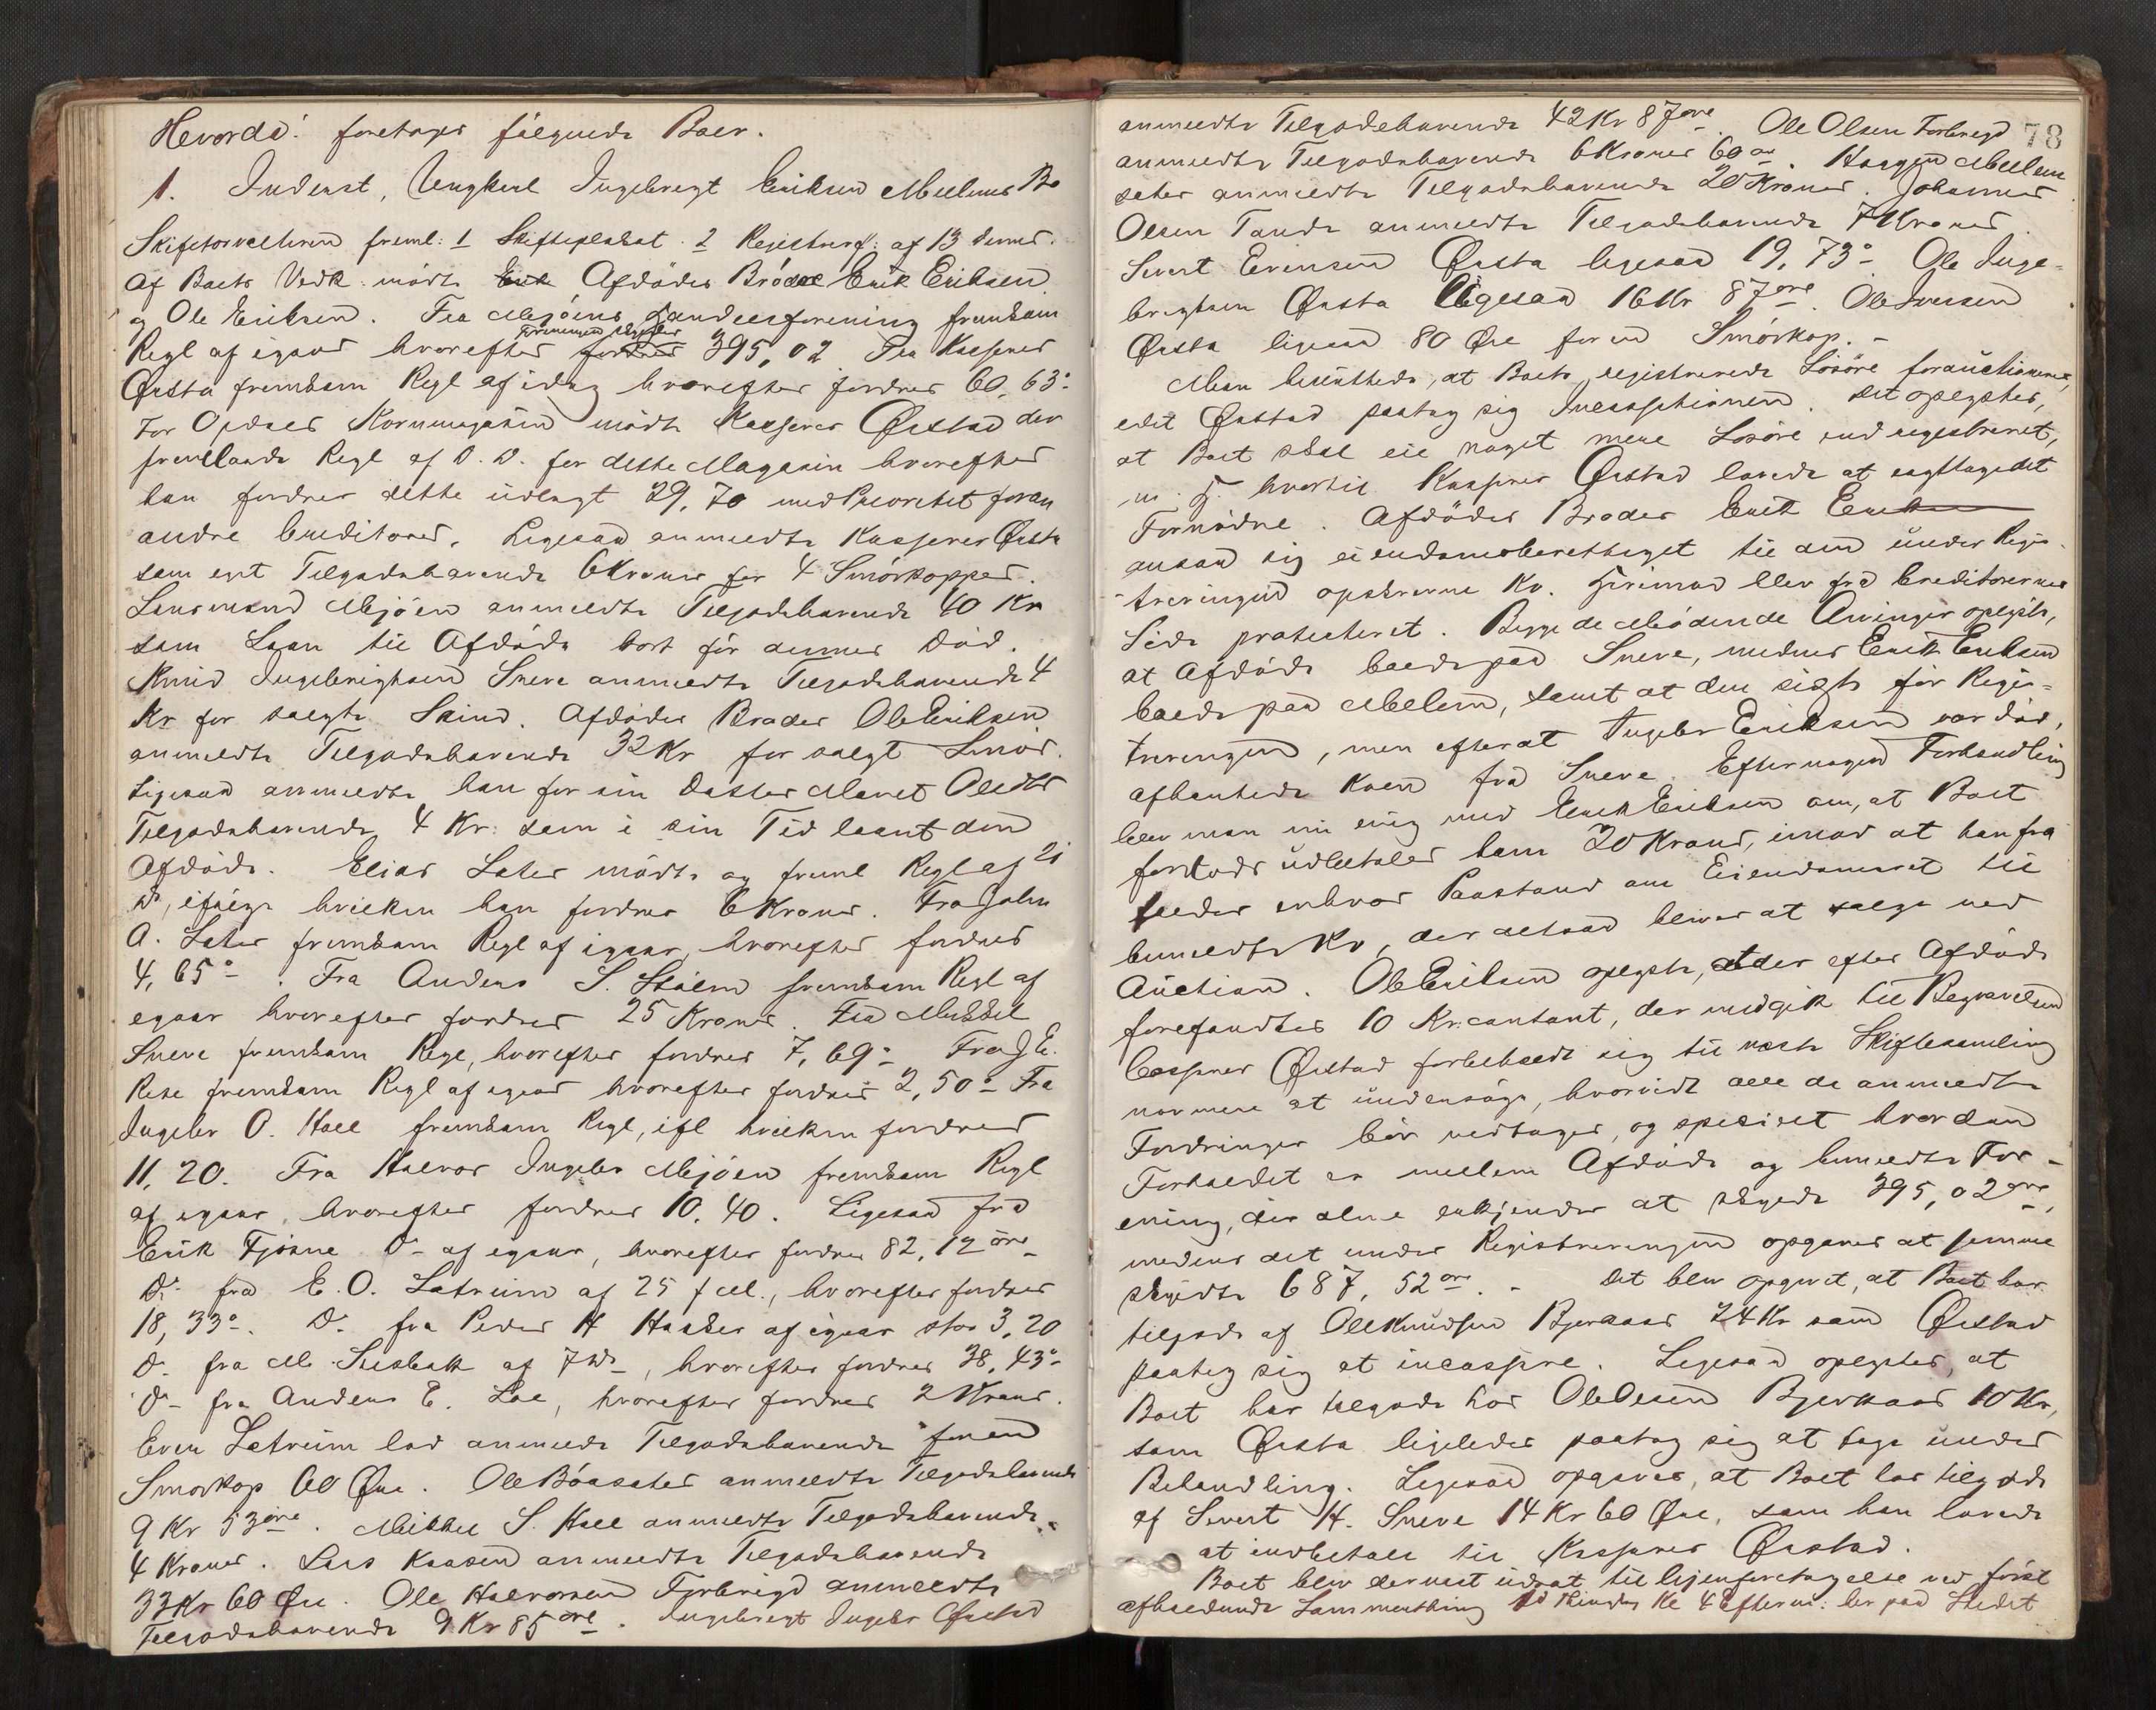 Hvorda: foretoges følgende Boer.
1. Inderst, Ungkarl Ingebrigt Eriksen Mellems Bo
Skifteforvalteren freml: 1 Skifteplakat. 2 Registreringsf: af 13 dennes.
Af Boets Vedk. mødte Afdødes Brødre Erik Eriksen
og Ole Eriksen. Fra Mjøens Handelsforening fremkom
Regl af igaar hvorefter Foreningen skylder 395,02 Fra Kasserer
Ørsta fremkom Regl af idag hvorefter fordres 60,63 ø
For Opdals Kornmagasin mødte Kasserer Ørstad der
fremlagde Regl af D.D. for dette Magasin hvorefter
han fordrer dette udlagt 29,70 med Prioritet foran
andre Creditorer. Ligesaa anmeldte Kasserer Ørsta
som eget Tilgodehavende 6 Kroner for 4 Smørkopper.
Lensmand Mjøen anmeldte Tilgodehavende 40 Kr
som Laan til Afdøde kort før dennes Død.
Knud Ingebrigtsen Sneve anmeldte Tilgodehavende 4
Kr for solgte Skind. Afdødes Broder Ole Eriksen
anmeldte Tilgodehavende 32 Kr for solgt Smør.
Ligesaa anmeldte han for sin Datter Maret Olsdtr
Tilgodehavende 4 Kr: som i sin Tid laant den
Afdøde. Elias Sæter mødte og freml Regl af 21
ds, ifølge hvilken han fordrer 6 Kroner. Fra John
A. Sæter fremkom Regl af igaar, hvorefter fordres
4,65 ø. Fra Anders S. Stølen fremkom Regl af
igaar hvorefter fordres 25 Kroner. Fra Mikkel
Sneve fremkom Regl, hvorefter fordres 7,69 ø Fra J E.
Rise fremkom Regl af igaar hvorefter fordres 2,50 ø Fra
Ingebr O. Hoel fremkom Regl, ifl hvilken fordres
11,20. Fra Halvor Ingebr Mjøen fremkom Regl
af igaar, hvorefter fordres 10,40. Ligesaa fra
Erik Fjøsne Do af igaar, hvorefter fordres 82,12 øre
Do fra E. O. Sætreim af 25 f M., hvorefter fordres
18,33 ø. Do fra Peder H Hakker af igaar stor 3,20
Do fra M. Susbak af 7 ds, hvorefter fordres 38,43 ø
Do fra Anders E. Loe, hvorefter fordres 2 Kroner.
Even Sætreim lod anmelde Tilgodehavende for en
Smørkop 60 Øre. Ole Böasæter anmeldte Tilgodehavende
9 Kr 53 øre. Mikkel S. Hoel anmeldte Tilgodehavende
4 Kroner. Lars Kaasen anmeldte Tilgodehavende
33 Kr 60 Øre. Ole Halvorsen Forbrigd anmeldte
Tilgodehavende 9 Kr 85 øre. Ingebrigt Ingebr Ørstad
78
anmeldte Tilgodehavende 42 Kr 87 øre. Ole Olsen Forbregd
anmeldte Tilgodehavende 6 Kroner 60 øre. Haagen Mellem
sæter anmeldte Tilgodehavende 20 Kroner. Johannes
Olsen Tande anmeldte Tilgodehavende 7 Kroner.
Sivert Evensen Ørsta ligesaa 19,73 ø Ole Inge-
brigtsen Ørsta ligesaa 16 Kr 87 øre. Ole Iversen
Ørsta ligesaa 80 Øre for en Smørkop. -
Man besluttede, at Boets registrerede Løsøre forauctioneres,
idet Ørstad paatog sig Incassationen. Det oplystes,
at Boet skal eie noget mere Løsøre end registreret,
m. H. hvortil Kasserer Ørstad lovede at iagttage det
Fornødne. Afdødes Broder Erik Eriksen
ansaa sig eiendomsberettiget til den under Regis-
treringen opskrevne Ko. Herimod blev fra Creditorernes
Side protesteret. Begge de Mødende Arvinger oplyste,
at Afdøde boede paa Sneve, medens Erik Eriksen
boede paa Mellem, samt at den sidste før Regis-
treringen, men efterat Ingebr Eriksen var død,
afhentede Koen fra Sneve. Efter nogen Forhandling
blev man nu enig med Erik Eriksen om, at Boet
forlods udbetaler ham 20 Kroner, imod at han fra
falder enhver Paastand om Eiendomsret til
bemeldte Ko, der altsaa bliver at sælge ved
Auction. Ole Eriksen oplyste, at der efter Afdøde
forefandtes 10 Kr. contant, der medgik til Begravelsen
Casserer Ørstad forbeholdt sig til næste Skiftesamling
nærmere at undersøge, hvorvidt alle de anmeldte
Fordringer bør vedtages, og specielt hvordan
Forholdet er mellem Afdøde og bemeldte For-
ening, der alene erkjender at skylde 395,02 øre,
medens det under Registreringen opgaves at samme
skyldte 687,52 øre. - Det blev opgivet, at Boet har
tilgode af Ole Knudsen Bjerkaas 24 Kr som Ørstad
paatog sig at incassere. Ligesaa oplystes, at
Boet har tilgode hos Ole Olsen Bjerkaas 10 Kr,
som Ørsta ligeledes paatog sig at tage under
Behandling. Ligesaa opgaves, at Boet har tilgode
af Sivert H. Sneve 14 Kr 60 Øre, som han lovede
at indbetale til Kasserer Ørstad.
Boet blev dernæst udsat til Gjenforetagelse ved først
afholdende Sommerthing Kl 4 Efterm: her paa Stedet